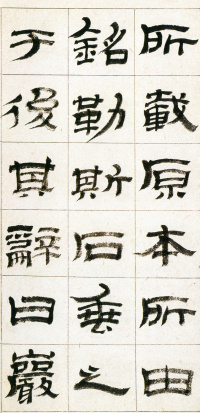 所載原本所由
銘勒斯石垂之
于後其辭曰巖